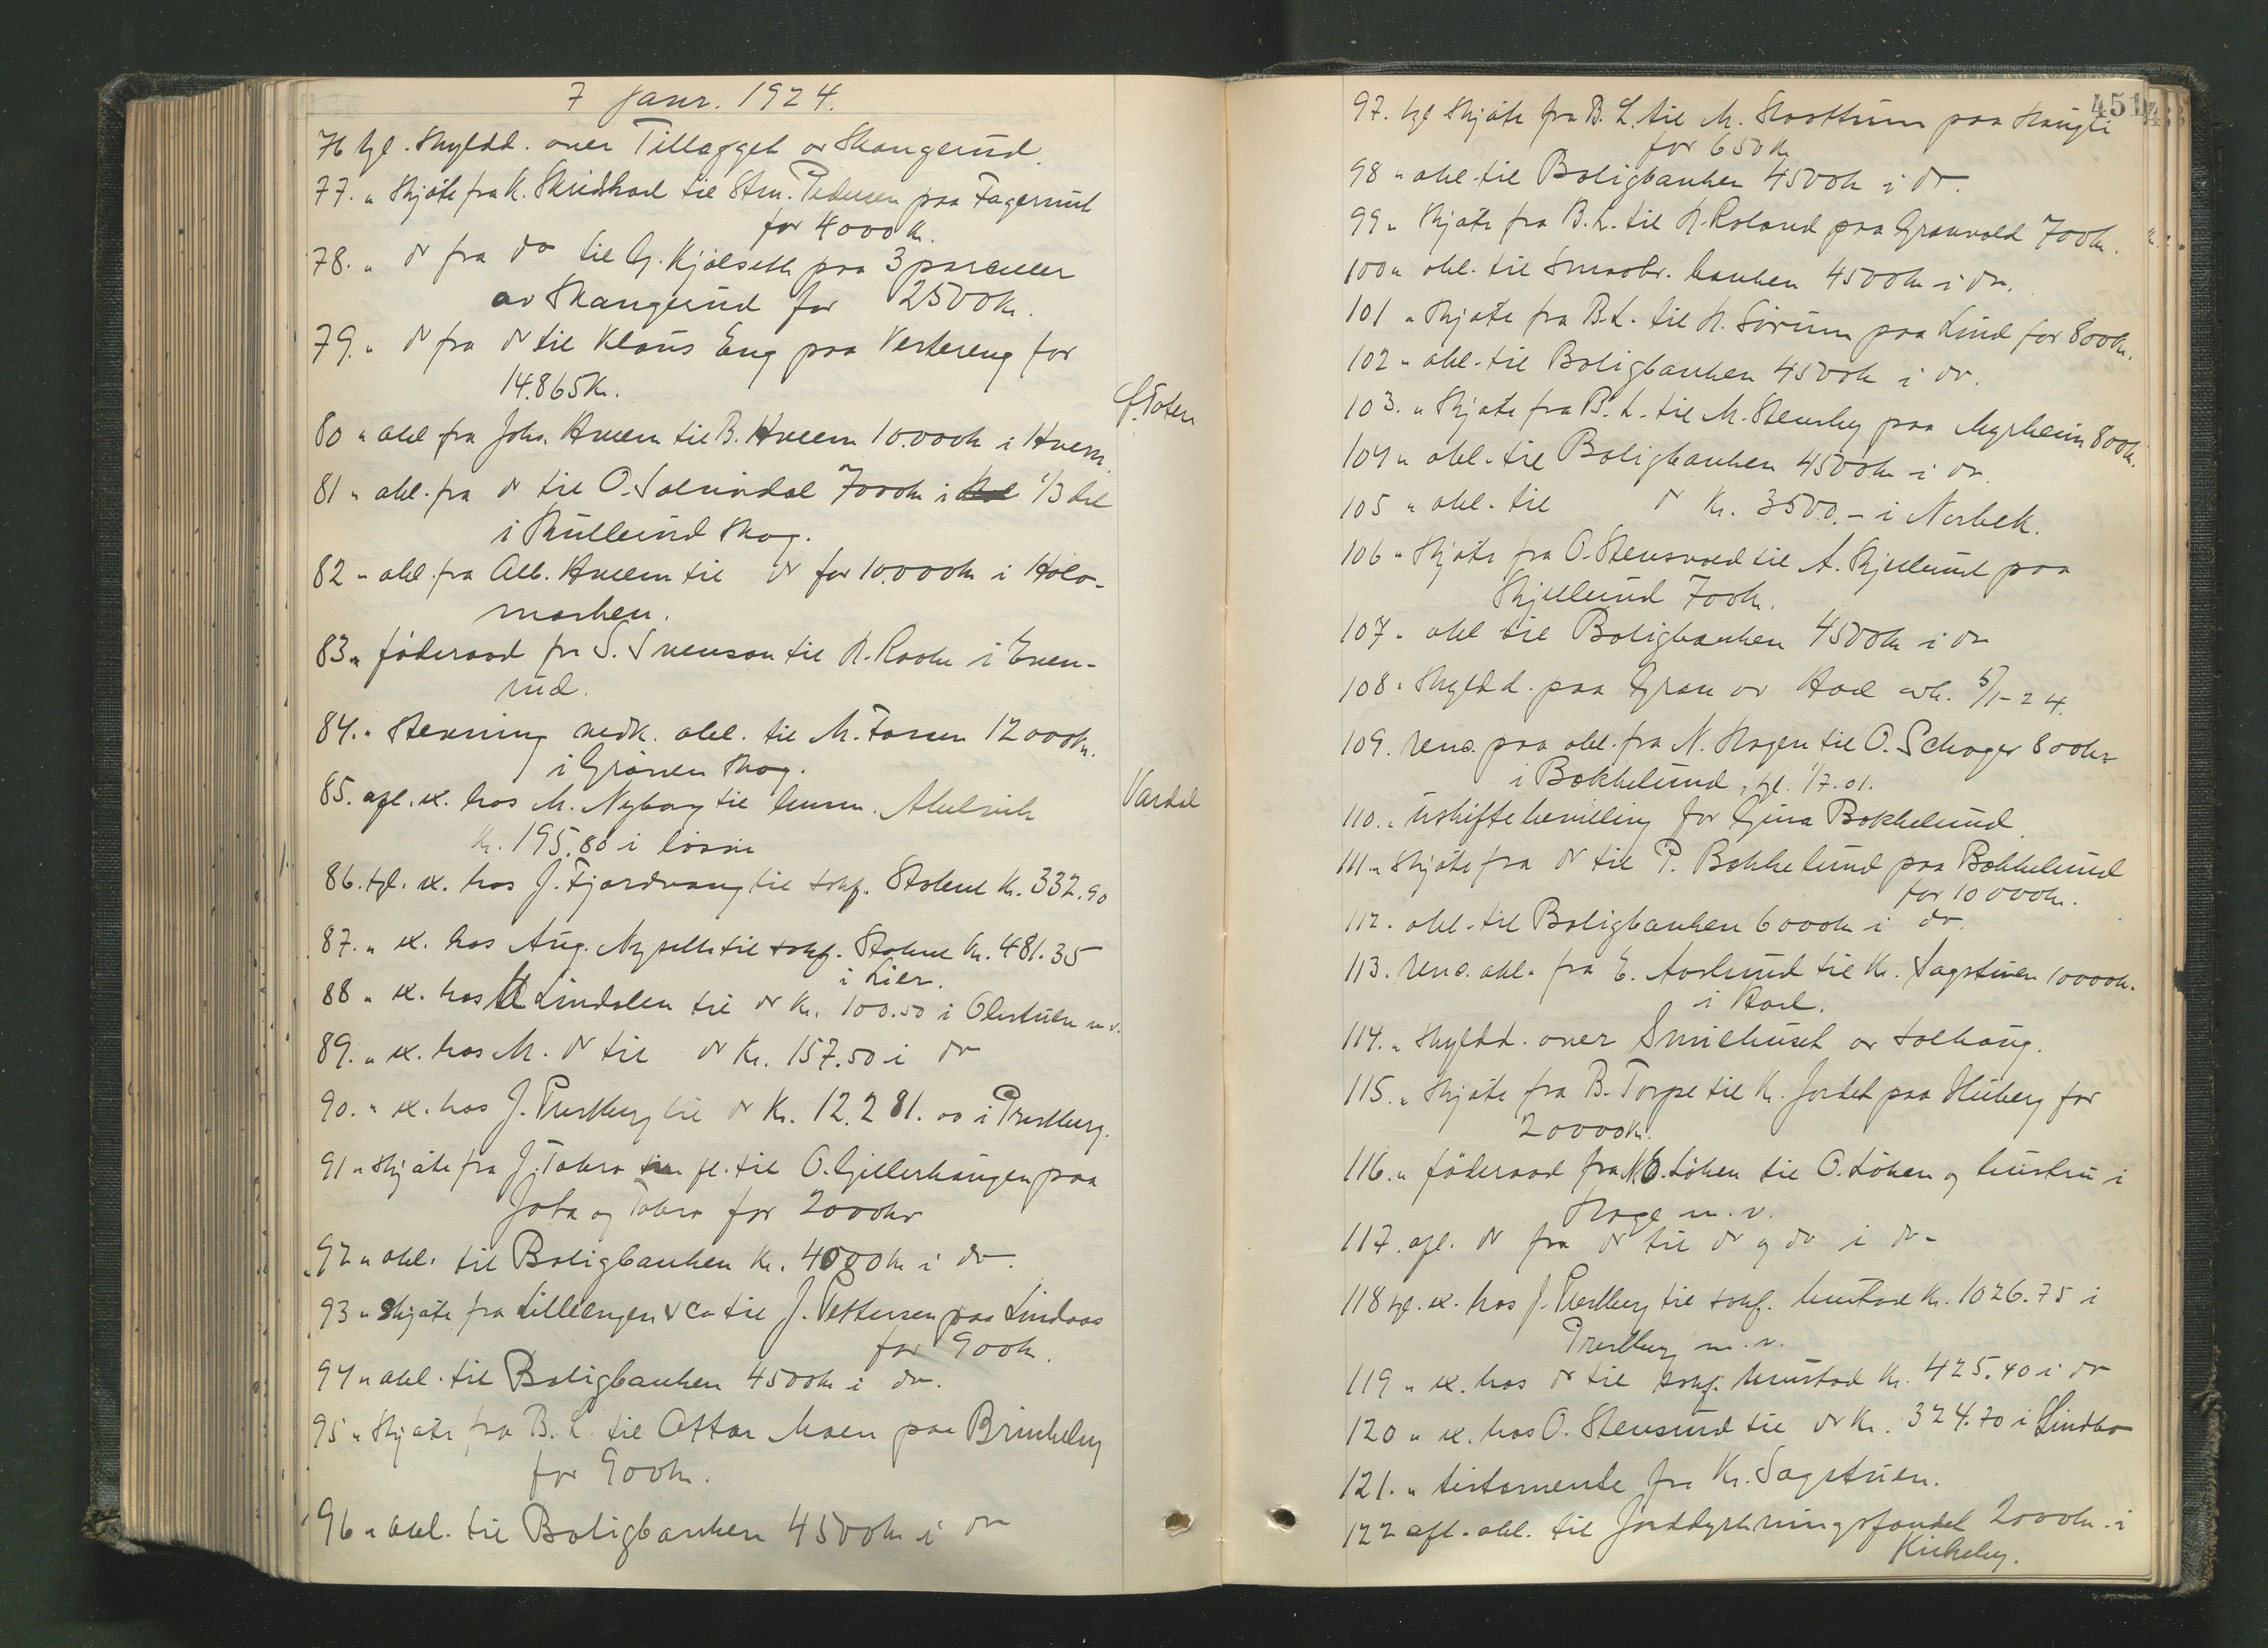 7 Janr. 1924.
76 tgl. Skyldd. over Tillægget av Skangerud.
77. " Skjøte fra K. Skridshol til Stm. Pedersen paa Fagerlund
for 4000 kr.
78. " do fra do til G. Kjølseth paa 3 parceller
av Skangerud for 2500 kr.
79. " do fra do til Klaus Eng paa Vestereng for
14.865 Kr.
Ø. Toten
80 " obl fra Johs. Hveem til B. Hveem 10.000 kr i Hveem
81 " obl. fra do til O. Solsirdal 7000 kr i 1/3 del
i Skullerud Skog.
82 " obl. fra Alb. Hveem til do for 10.000 kr i Holo-
marken.
83 " føderaad fra S. Svenson til K. Rooke i Even-
rud.
84. " Stevning vedk. obl. til M. Fossen 12000 kr.
i Grønen Skog.
85. afl. ex. hos M. Nyborg til
Kr. 195.80 i løsøre
Vardal
86. tgl. ex. hos J. Fjordvang til sakf. Stabell Kr. 332.90
87. " ex. hos Aug. Nyseth til sakf. Stabell Kr. 481.35
i Lier.
88 " ex. hos H Lindalen til do Kr. 100.50 i Olestuen m.v.
89. " ex. hos M. do til do Kr. 157.50 i do
90. " ex. hos J. Prestberg til do Kr. 12.281.00 i Prestberg.
91 " Skjøte fra J. Tobro m fl. til O. Gillerhaugen paa
Jota og Tobro for 2000 kr
92 " obl. til Boligbanken Kr. 4000 kr i do.
93 " Skjøte fra Lillengen & Co til J. Pettersen paa Lindaas
for 900 kr.
94 " obl. til Boligbanken 4500 kr i do.
95 " Skjøte fra B. L. til Ottar Moen paa Brinkeby
for 900 kr.
96 " obl. til Boligbanken 4500 kr i do
451
97. tgl Skjøte fra B. L. til M. Skottum paa Haugli
for 650 kr
98 " obl. til Boligbanken 4500 kr i do.
99 " Skjøte fra B. L. til K. Roland paa Granvold 700 kr.
100 " obl. til Smaabr. banken 4500 kr i do.
101 " Skjøte fra B. L. til K. Sørum paa Lind for 800 kr.
102 " obl. til Boligbanken 4500 kr i do.
103. " Skjøte fra B. L. til M. Stensby paa Myrheim 800 kr.
104 " obl. til Boligbanken 4500 kr i do.
105 " obl. til do Kr. 3500.- i Norbek.
106 " Skjøte fra O. Stensvold til A. Skjellerud paa
Skjellerud 700 kr.
107 " obl til Boligbanken 4500 kr i do
108 " Skyldd. paa Gran av Hoel avh. 5/1-24.
109. rens. paa obl. fra N. Hagen til O. Schager 800 kr
i Bokkelund, tgl. 1/7.01.
110. " Uskiftebevilling for Gina Bokkelund.
111 " Skjøte fra do til P. Bokkelund paa Bokkelund
for 10000 kr.
112. obl. til Boligbanken 6000 kr i do.
113. rens. obl. fra E. Aaslund til Kr. Sagstuen 10000 kr.
i Hoel.
114. " Skyldd. over Smiehuset av Solhaug.
115. " Skjøte fra B. Torpe til K. Jordet paa Huberg for
20000 kr.
116. " føderaad fra N.O. Løken til O. Løken og hustru i
Hage m.v.
117. afl. do fra do til do og do i do.
118 tgl. ex. hos J. Prestberg til sakf. Mustad Kr. 1026.75 i
Prestberg m.v.
119 " ex. hos do til sakf. Mustad Kr. 425.40 i do
120 " ex. hos O. Stensrud til do Kr. 324.70 i Lindbo
121. " testamente fra Kr. Sagstuen.
122 afl. obl. til Jorddyrkningsfondet 2000 kr. i
Kirkeby.